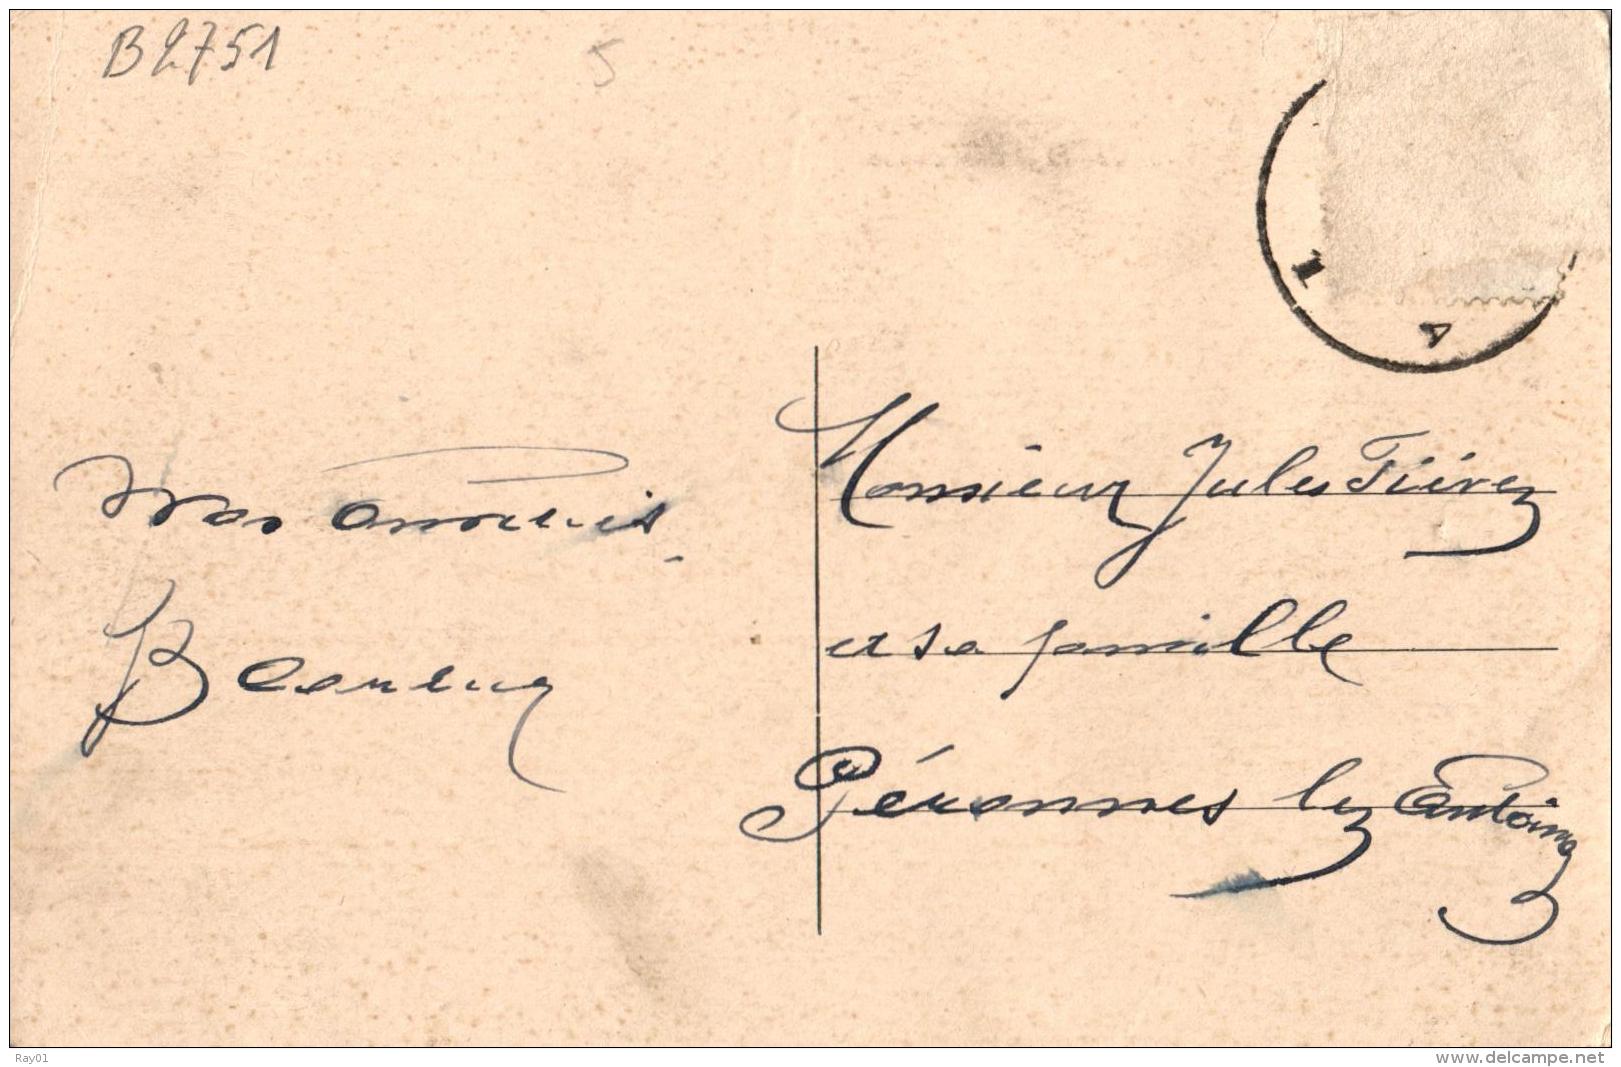 B2751
5
1
A
Vos amis
Monsieur Jules Fiévez
et sa famille
Péronnes lez Antoing
Ray01
www.delcampe.net